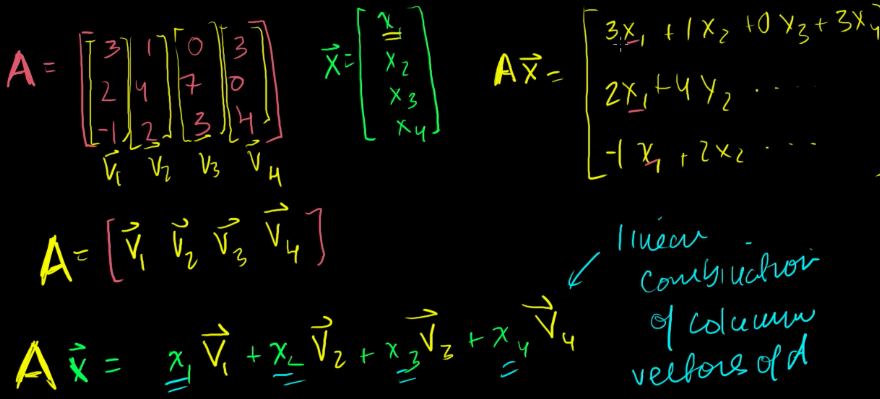 A = [3 1 0 3
2 4 7 0
-1 2 3 4]
v⃗₁ v⃗₂ v⃗₃ v⃗₄
x⃗ = [x₁
x₂
x₃
x₄]
Ax⃗ = [3x₁ + 1x₂ + 0x₃ + 3x₄
2x₁ + 4x₂ .....
-1x₁ + 2x₂ ...]
A = [v⃗₁ v⃗₂ v⃗₃ v⃗₄]
Ax⃗ = x₁v⃗₁ + x₂v⃗₂ + x₃v⃗₃ + x₄v⃗₄
linear
combination
of column
vectors of A